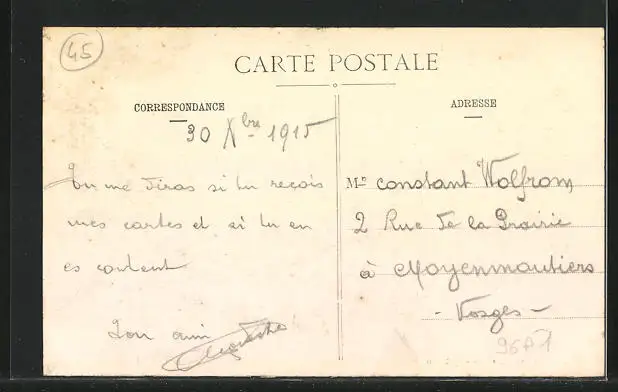 45
CARTE POSTALE
CORRESPONDANCE
ADRESSE
30 Xbre 1915
Tu me diras si tu reçois
mes cartes et si tu en
es content
Ton ami
Mr Constant Wolfrom
2 Rue de la Prairie
à Moyenmoutiers
- Vosges -
96P1